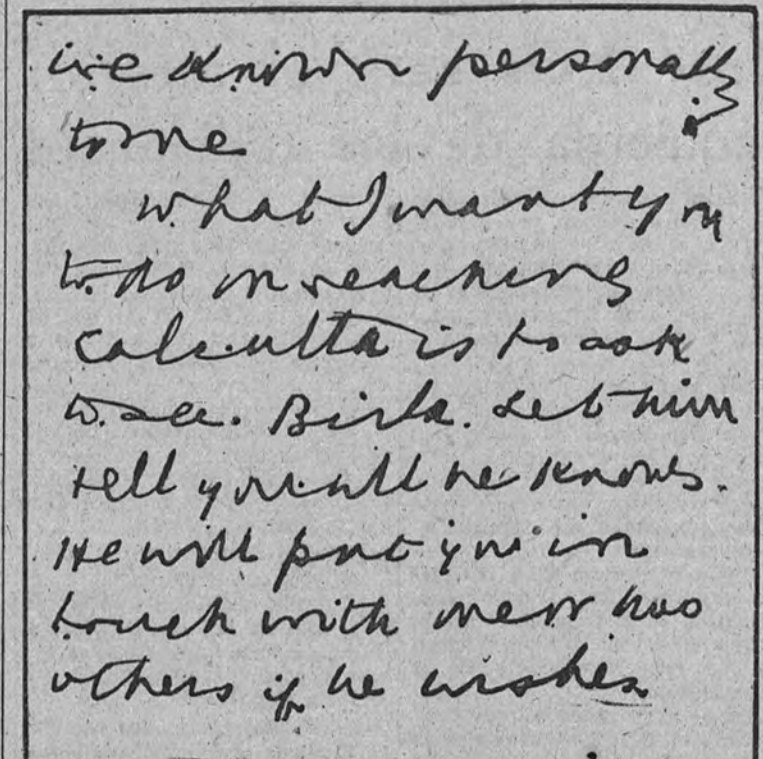 known personally
to me
what I want you
to do on reaching
Calcutta is to ask
to see. Birla. Let him
tell you all he knows.
He will put you in
touch with one or two
others if he wishes